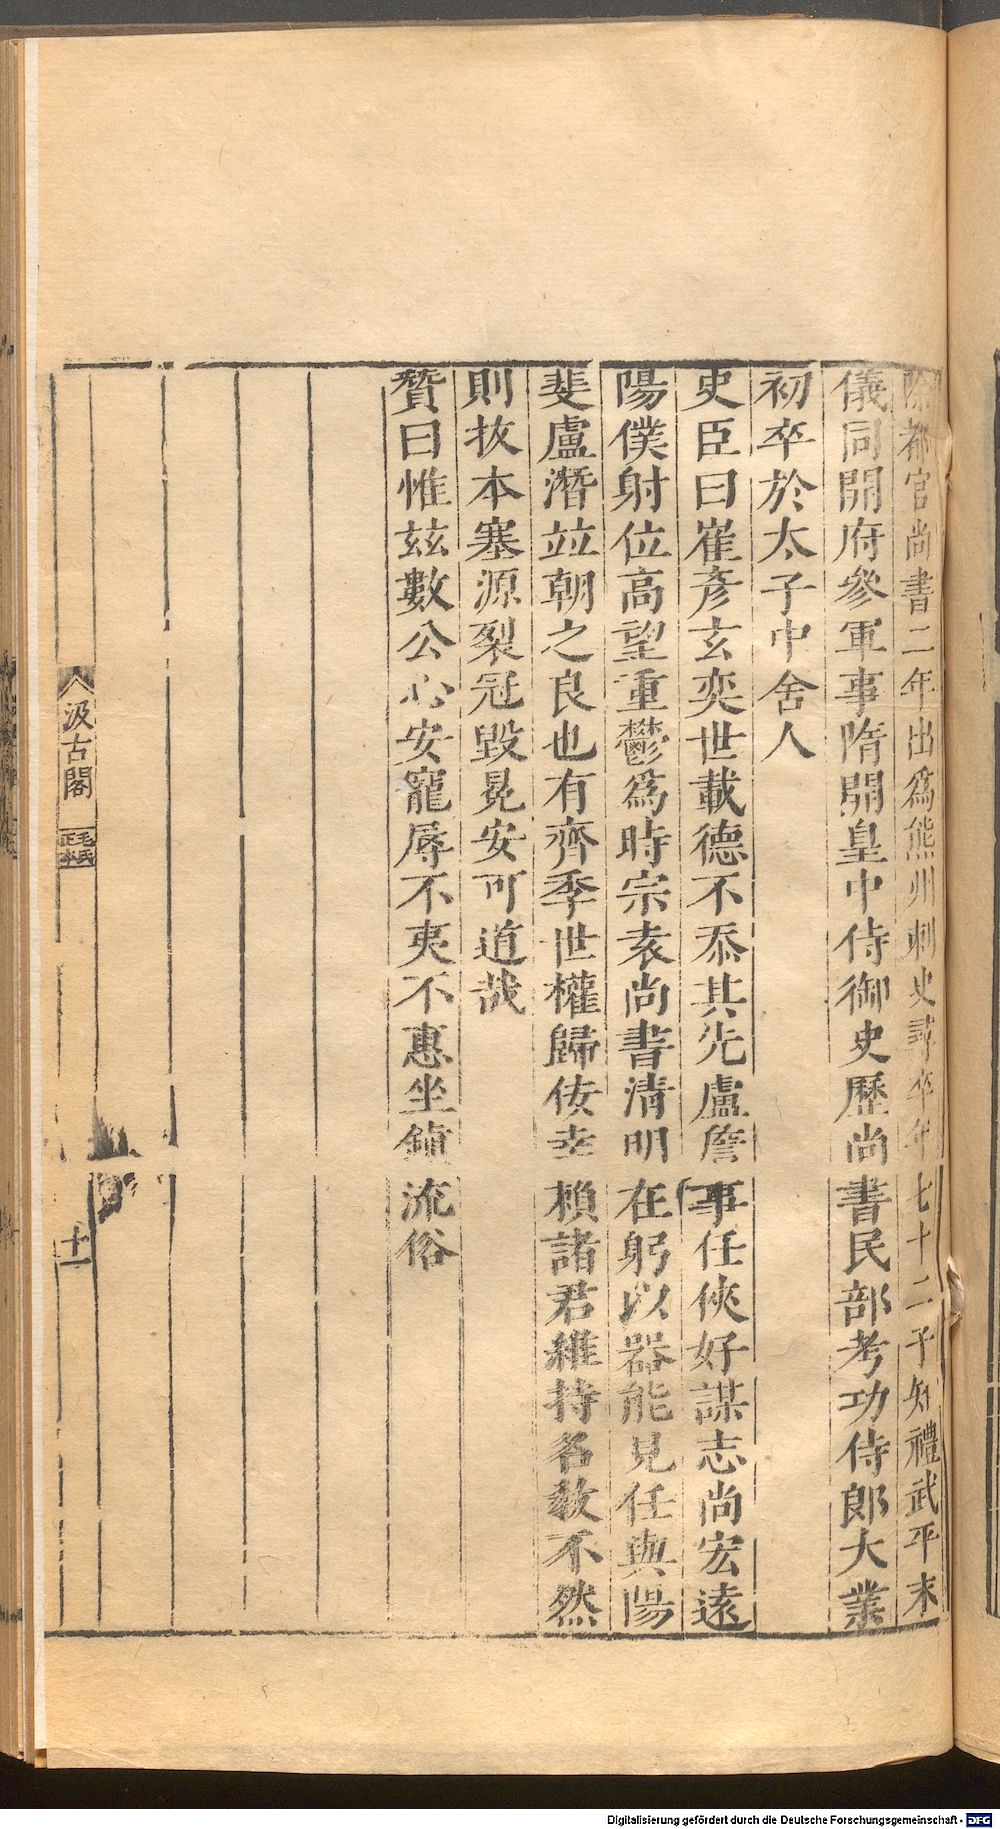 除都官尚書二年出爲熊州刺史尋卒年七十二子知禮武平末
儀同開府參軍事隋開皇中侍御史歷尚書民部考功侍郎大業
初卒於太子中舍人
史臣曰崔彥玄奕世載德不忝其先盧詹事任俠好謀志尚宏遠
陽僕射位高望重鬱爲時宗袁尚書清明在躬以器能見任與陽
斐盧潛竝朝之良也有齊季世權歸佞幸賴諸君維持名教不然
則拔本塞源裂冠毀冕安可道哉
贊曰惟茲數公心安寵辱不夷不惠坐鎮流俗
汲古閣
毛氏
正本
十一
Digitalisierung gefördert durch die Deutsche Forschungsgemeinschaft - DFG